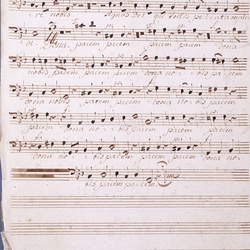 re nobis Agnus Dei qui tollis peccata mundi
Dona, pacem pacem pacem pacem
nobis pacem pacem dona nobis pacem
dona nobis pacem pacem dona nobis pacem
pacem dona no - bis pacem pacem
dona no - bis pacem pacem dona no-
bis pacem pacem.